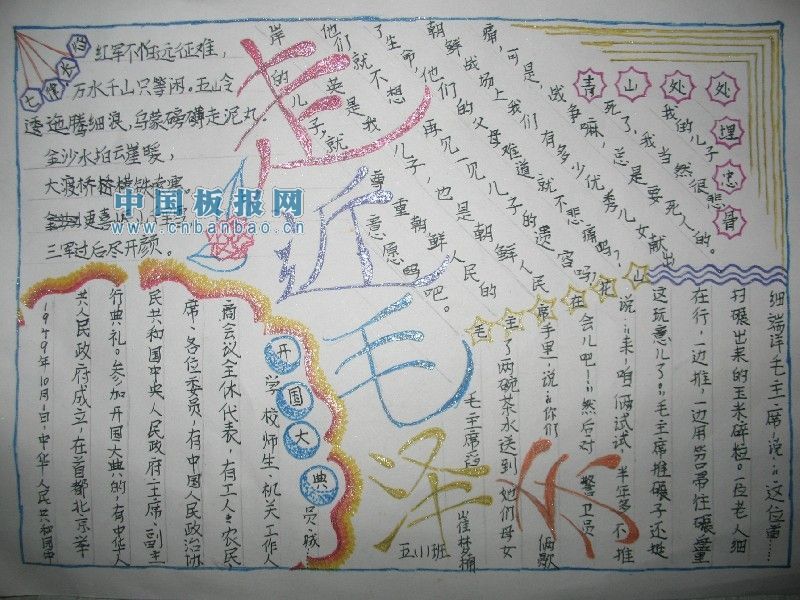 走近毛泽东
七律长征
红军不怕远征难，
万水千山只等闲。五岭
逶迤腾细浪，乌蒙磅礴走泥丸。
金沙水拍云崖暖，
大渡桥横铁索寒。
更喜岷山千里雪，
三军过后尽开颜。
中国板报网
www.cnbanbao.cn
青山处处埋忠骨
我的儿子
死了，我当然很悲
痛，可是，战争嘛，总是要死人的。
朝鲜战场上我们有多少优秀儿女献出
了生命，他们的父母难道就不悲痛吗？
他们就不想再见一见儿子的遗容吗？
岸英是我的儿子，也是朝鲜人民的
儿子，就尊重朝鲜人民的
意愿吧。
毛主席在花山
细端详毛主席，说：“这位重……
打碾出来的玉米碎粒。一位老人细
在行，一边推，一边用笤帚往碾盘里
这玩意儿了。”毛主席推碾子还挺
说：“来，咱俩试试，半年多不推
会儿吧！”然后对警卫员
手里一说：“你们俩歇
了两碗茶水送到她们母女
毛主席
开国大典
学校师生、机关工作人员、城
商会议全体代表，有工人、农民
席、各位委员，有中国人民政治协
民共和国中央人民政府主席、副主
行典礼。参加开国大典的，有中华人
共人民政府成立，在首都北京举
1949年10月1日，中华人民共和国中
五(1)班